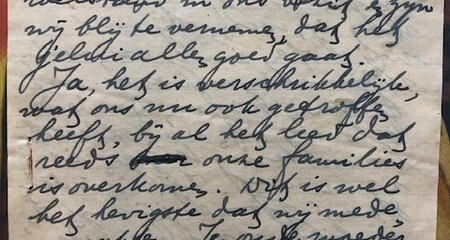 in ons bezit e zijn
wij blij te vernemen, dat het
gelui alles goed gaat.
Ja, het is verschrikkelijk,
wat ons nu ook getroffen
heeft, bij al het leed dat
reeds onze families
is overkomen. Dit is wel
het hevigste dat wij mede,
Je oude moeder